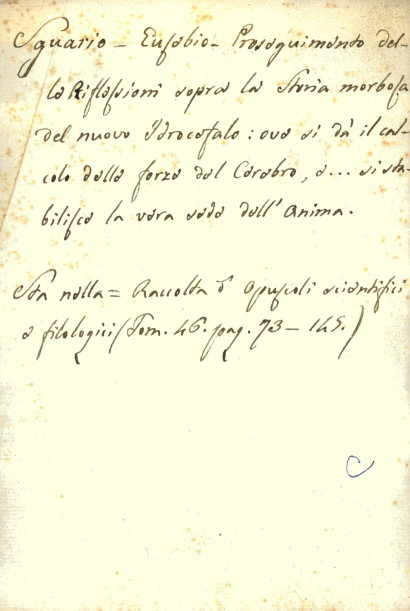 Sguario – Eusebio – Proseguimento del-
le Riflessioni sopra la Storia morbosa
del nuovo Idrocefalo: ove si dà il cal-
colo delle forze del Cerebro, e... si sta-
bilisce la vera sede dell' anima.
Sta nella = Raccolta d' Opuscoli scientifici
e filologici (Tom. 46. pag. 73 – 145.)
C